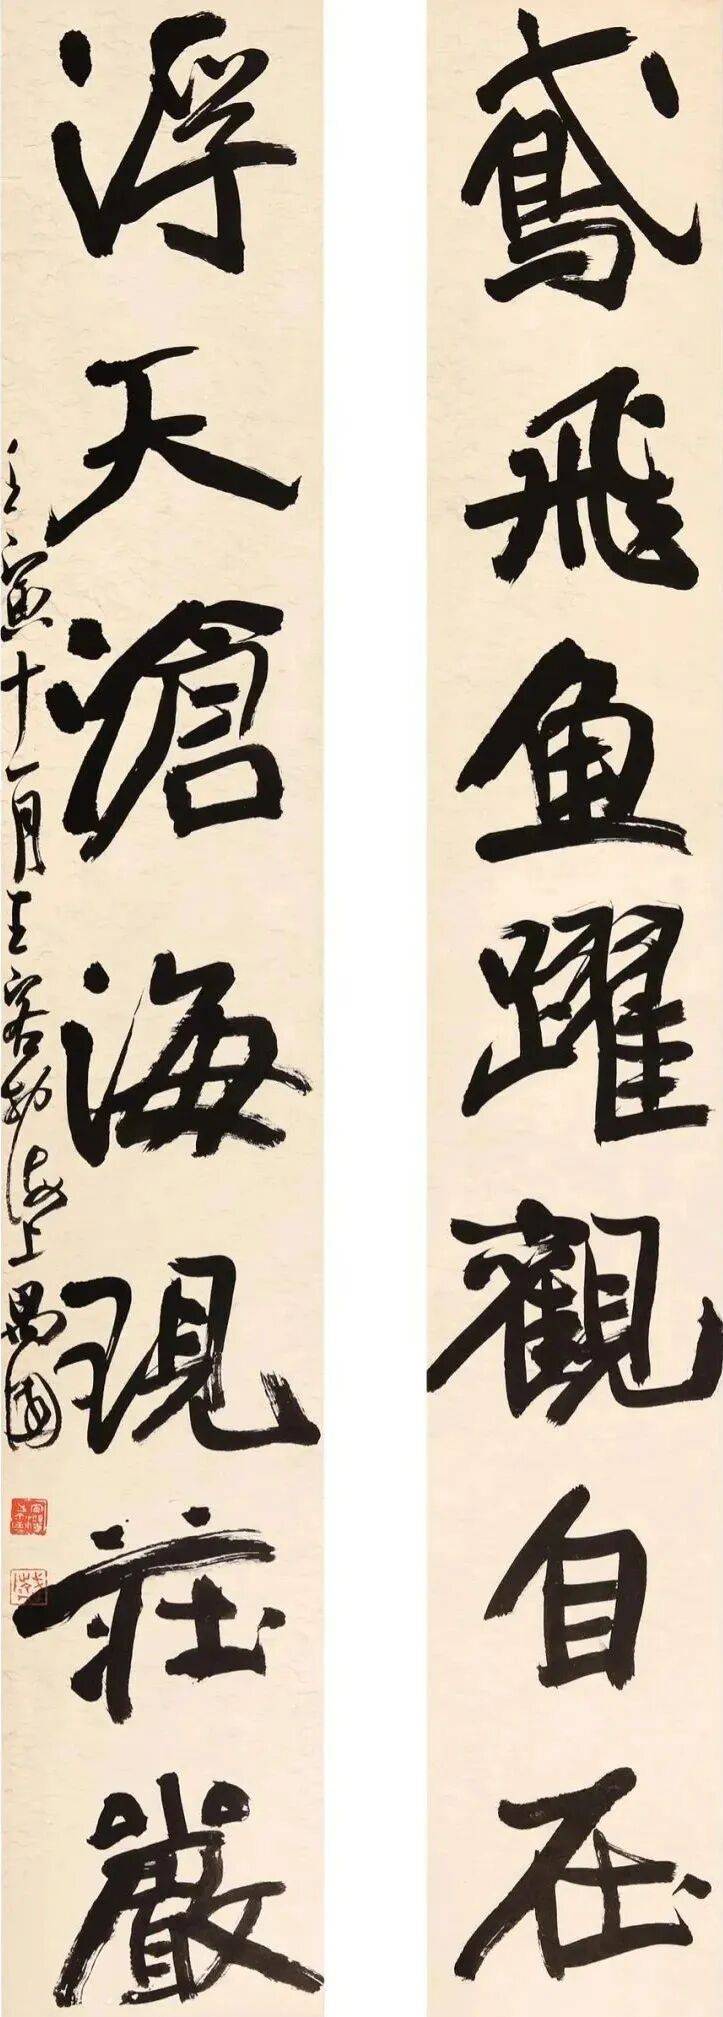 鳶飛魚躍觀自在
浮天滄海現莊嚴
壬寅十一月王客劫海上